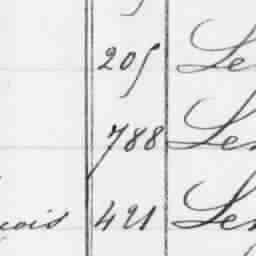 205 Le
788 Le
çois 421 Le